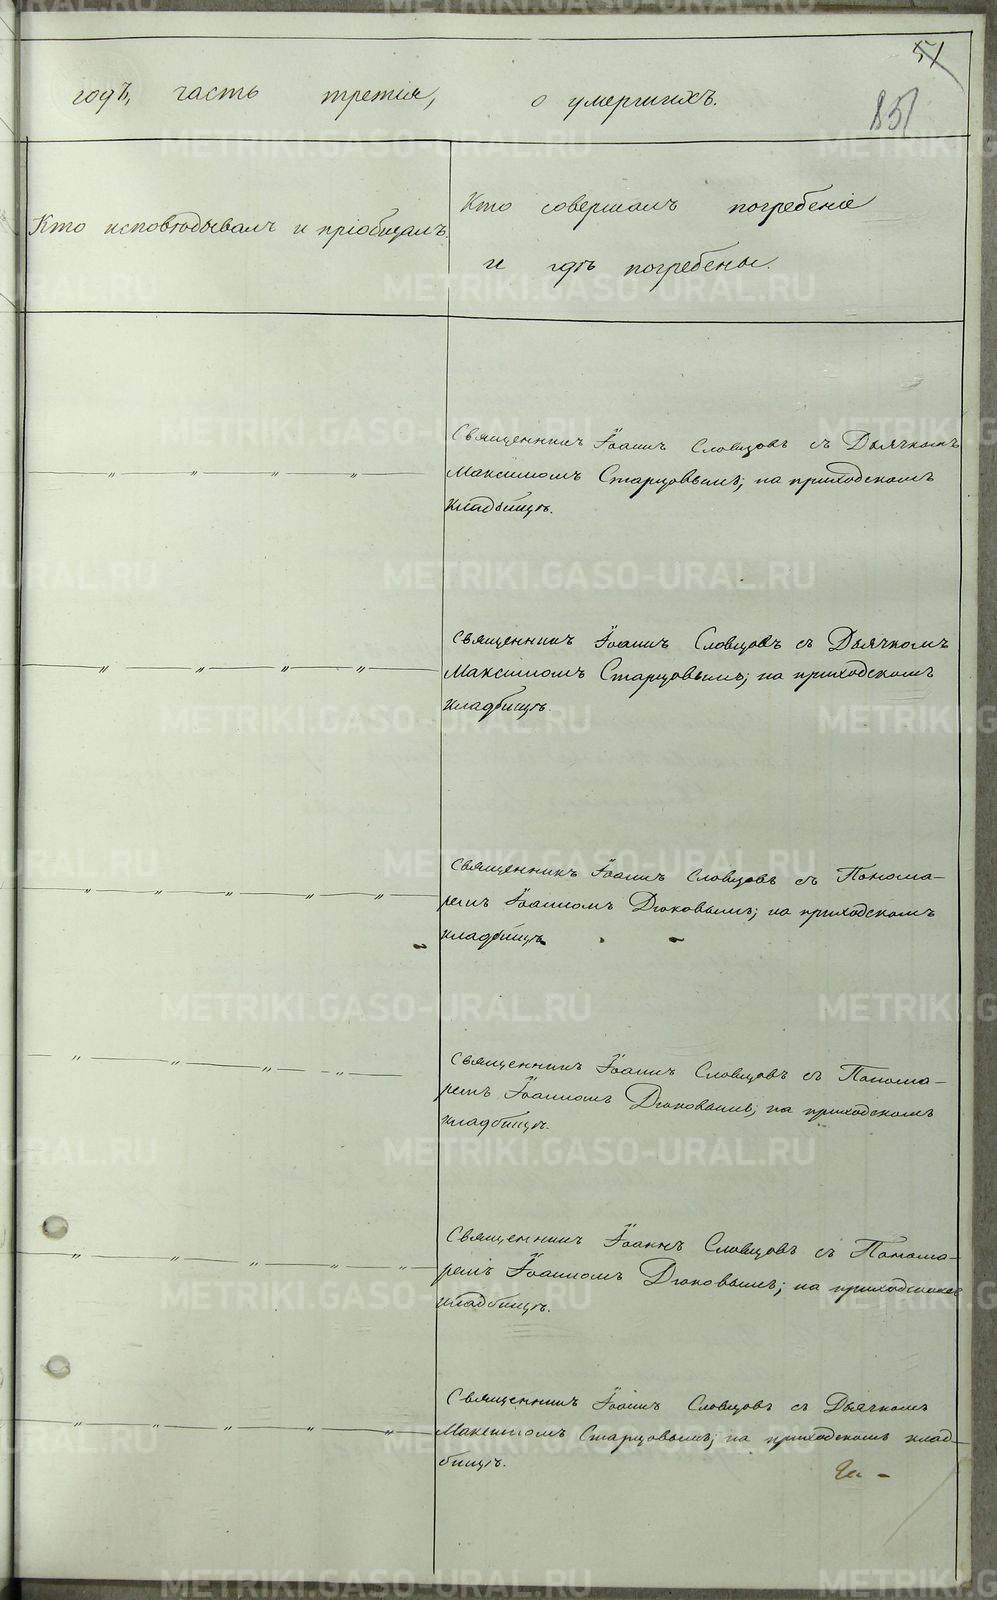 51
851
годъ, часть третія, о умершихъ.
Кто исповѣдывалъ и пріобщалъ.
Кто совершалъ погребеніе
и гдѣ погребены.
Священникъ Іоаннъ Словцовъ съ Дьячкомъ
Максимомъ Старцовымъ; на приходскомъ
кладбищѣ.
Священникъ Іоаннъ Словцовъ съ Дьячкомъ
Максимомъ Старцовымъ; на приходскомъ
кладбищѣ.
Священникъ Іоаннъ Словцовъ съ Понома-
ремъ Іоанномъ Дюковымъ; на приходскомъ
кладбищѣ.
Священникъ Іоаннъ Словцовъ съ Понома-
ремъ Іоанномъ Дюковымъ; на приходскомъ
кладбищѣ.
Священникъ Іоаннъ Словцовъ съ Понома-
ремъ Іоанномъ Дюковымъ; на приходскомъ
кладбищѣ.
Священникъ Іоаннъ Словцовъ съ Дьячкомъ
Максимомъ Старцовымъ; на приходскомъ клад-
бищѣ.
METRIKI.GASO-URAL.RU